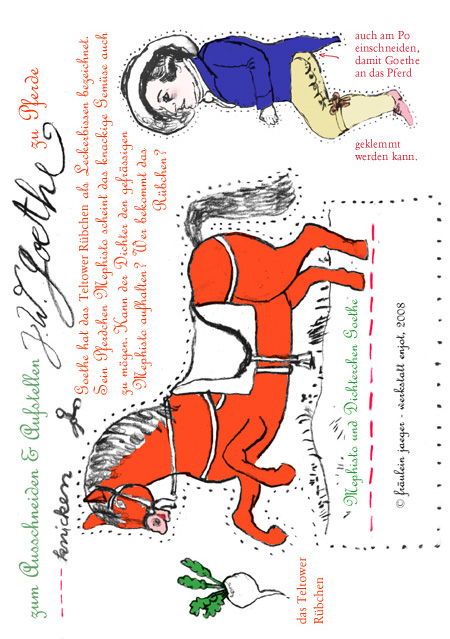 zum Ausschneiden & Aufstellen
knicken
J. W. Goethe zu Pferde
Goethe hat das Teltower Rübchen als Leckerbissen bezeichnet.
Sein Pferdchen Mephisto scheint das knackige Gemüse auch
zu mögen. Kann der Dichter den gefrässigen
Mephisto aufhalten? Wer bekommt das
Rübchen?
auch am Po
einschneiden,
damit Goethe
an das Pferd
geklemmt
werden kann.
Mephisto und Dichterchen Goethe
© fräulein jaeger - werkstatt enjot, 2008
das Teltower
Rübchen